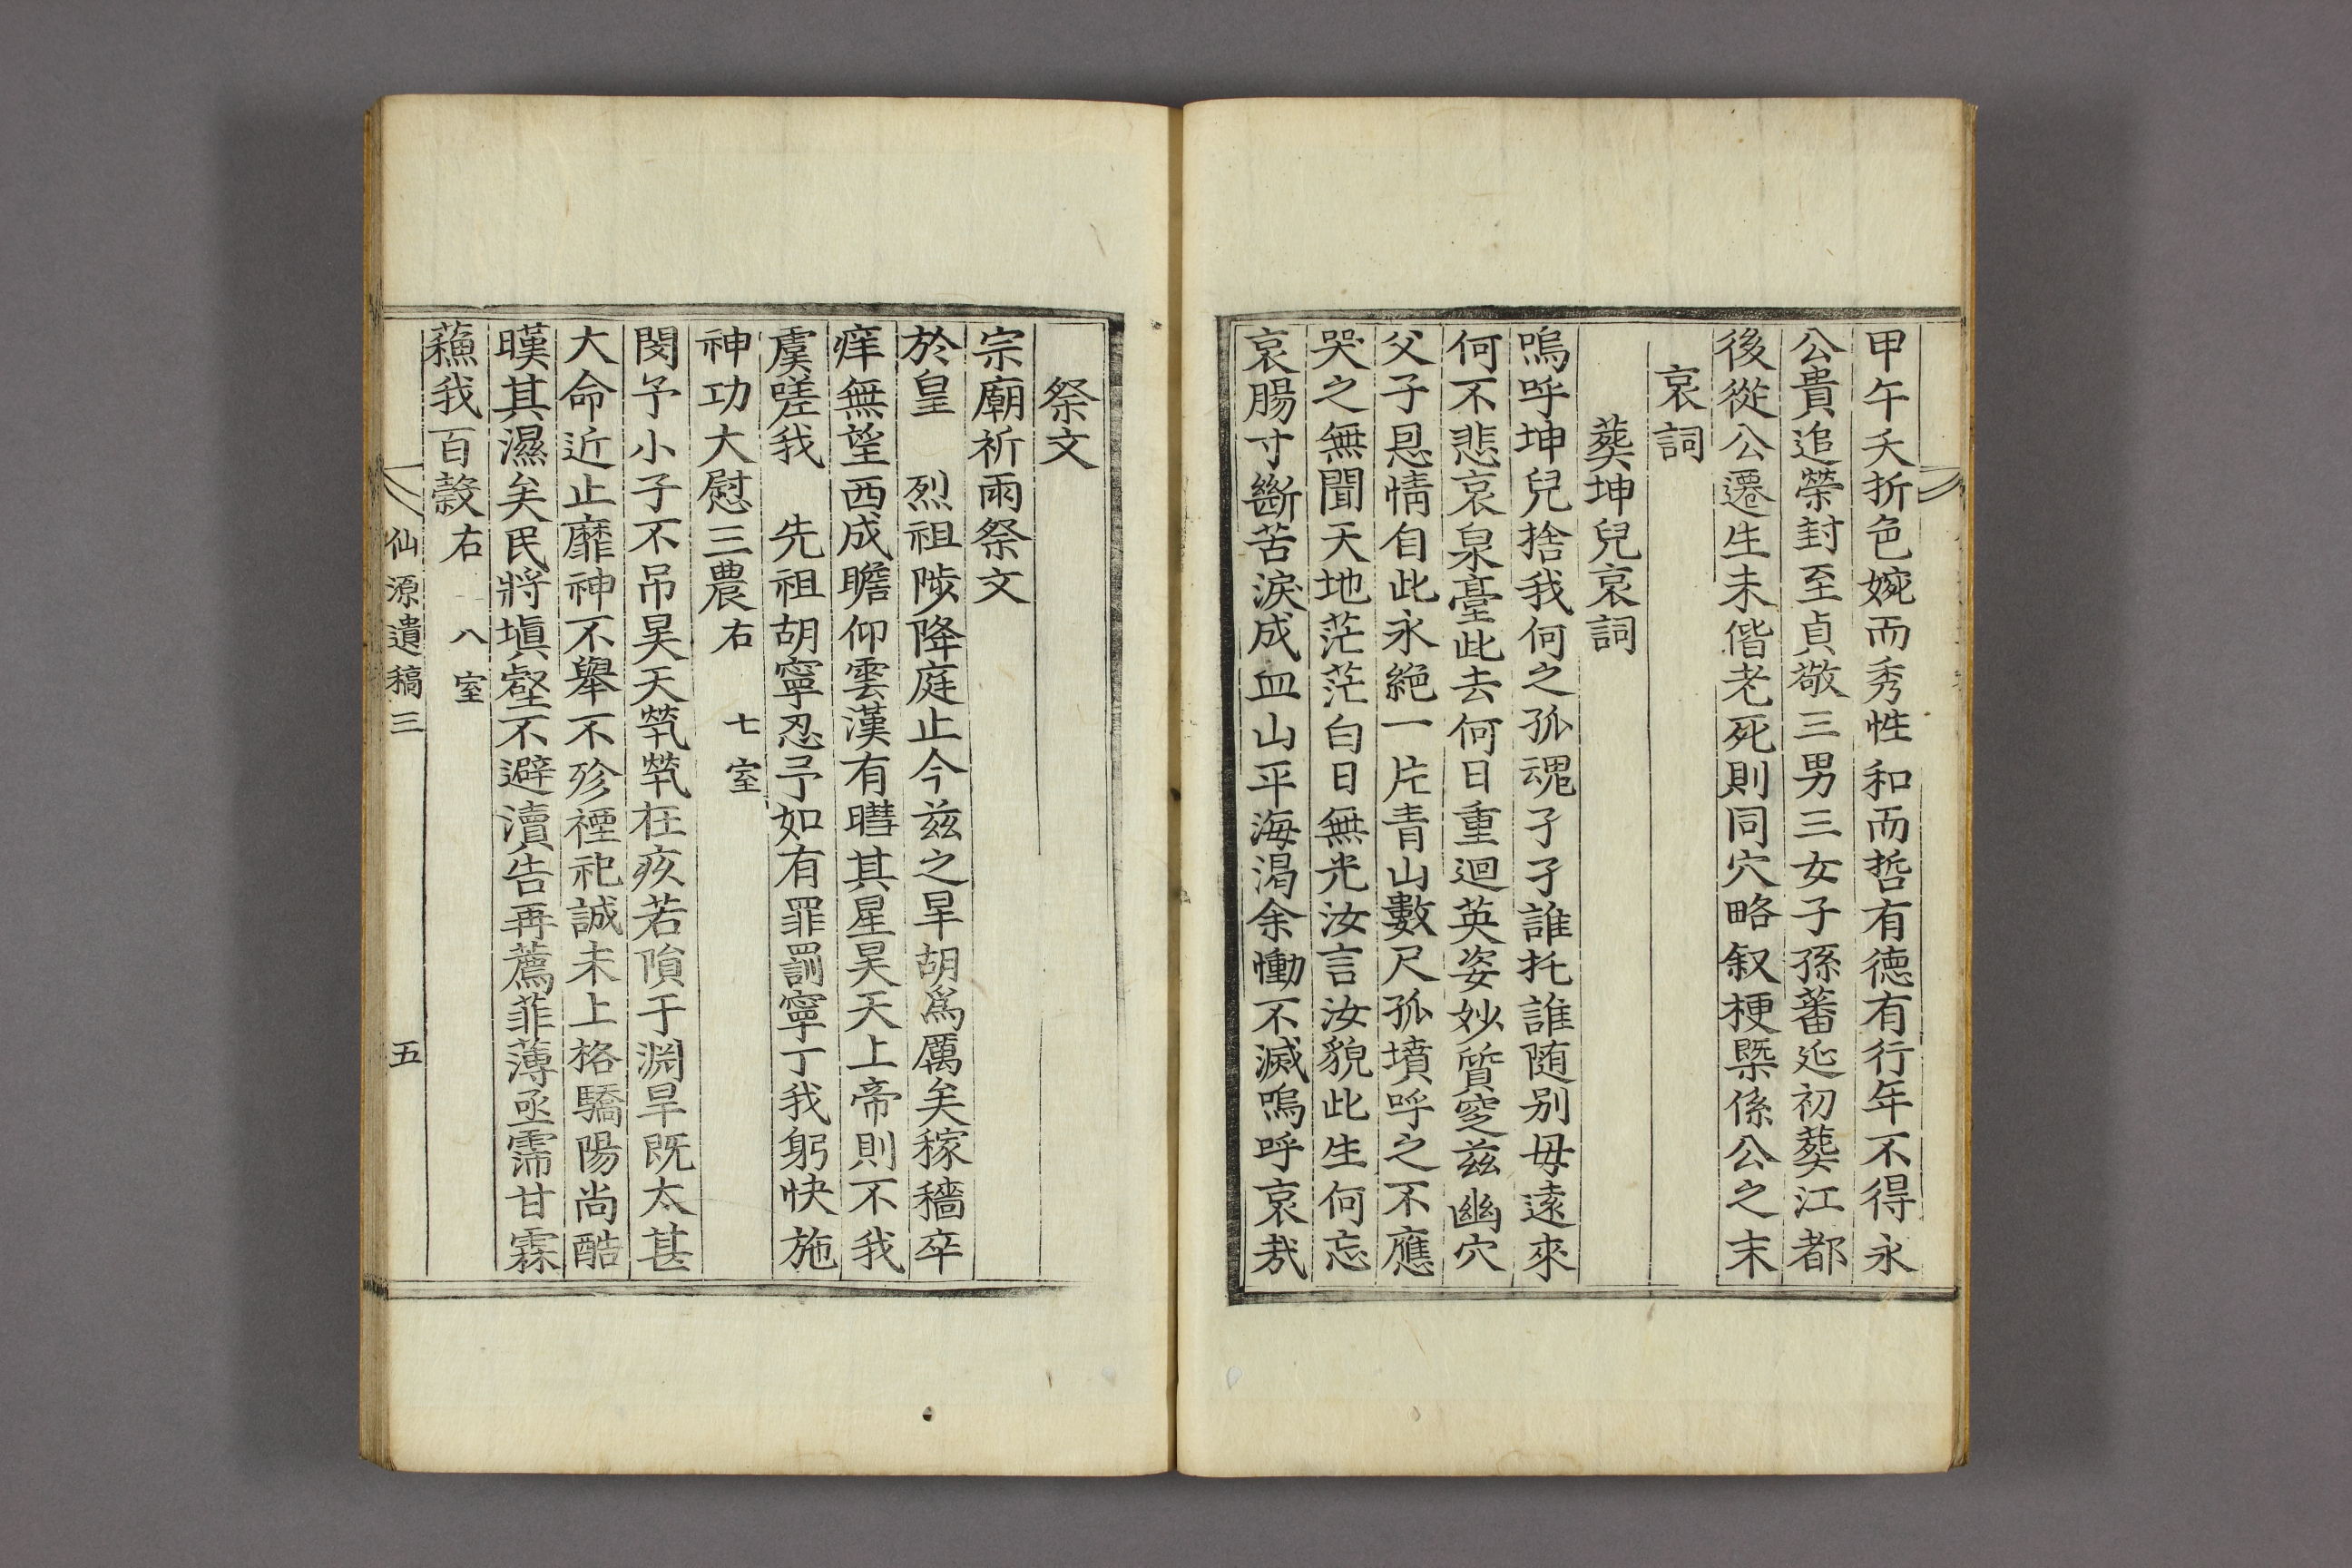 甲午夭折色婉而秀性和而哲有德有行年不得永
公貴追榮封至貞敬三男三女子孫蕃延初葬江都
後從公遷生未偕老死則同穴略叙梗槩係公之末
哀詞
葬坤兒哀詞
嗚呼坤兒捨我何之孤魂孑孑誰托誰随别母遠來
何不悲哀泉臺此去何日重迴英姿妙質窆兹幽穴
父子恩情自此永絶一片青山數尺孤墳呼之不應
哭之無聞天地茫茫白日無光汝言汝貌此生何忘
哀腸寸斷苦淚成血山平海渴余慟不滅嗚呼哀㦲
祭文
宗廟祈雨祭文
於皇　烈祖陟降庭止今兹之旱胡爲厲矣稼穡卒
痒無望西成瞻仰雲漢有嘒其星昊天上帝則不我
虞嗟我　先祖胡寧忍予如有罪罰寧丁我躬快施
神功大慰三農右　七室
閔予小子不吊昊天煢煢在疚若隕于淵旱既太甚
大命近止靡神不舉不殄禋祀誠未上格驕陽尚酷
暵其濕矣民將塡壑不避瀆告再薦菲薄亟霈甘霖
蘓我百糓右　八室
仙源遺稿三　五